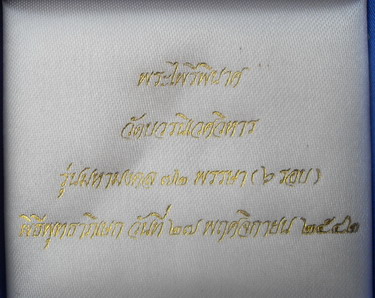 พระไพรีพินาศ
วัดบวรนิเวศวิหาร
รุ่นมหามงคล ๗๒ พรรษา (๖ รอบ)
พิธีพุทธาภิเษก วันที่ ๒๗ พฤศจิกายน ๒๕๔๒